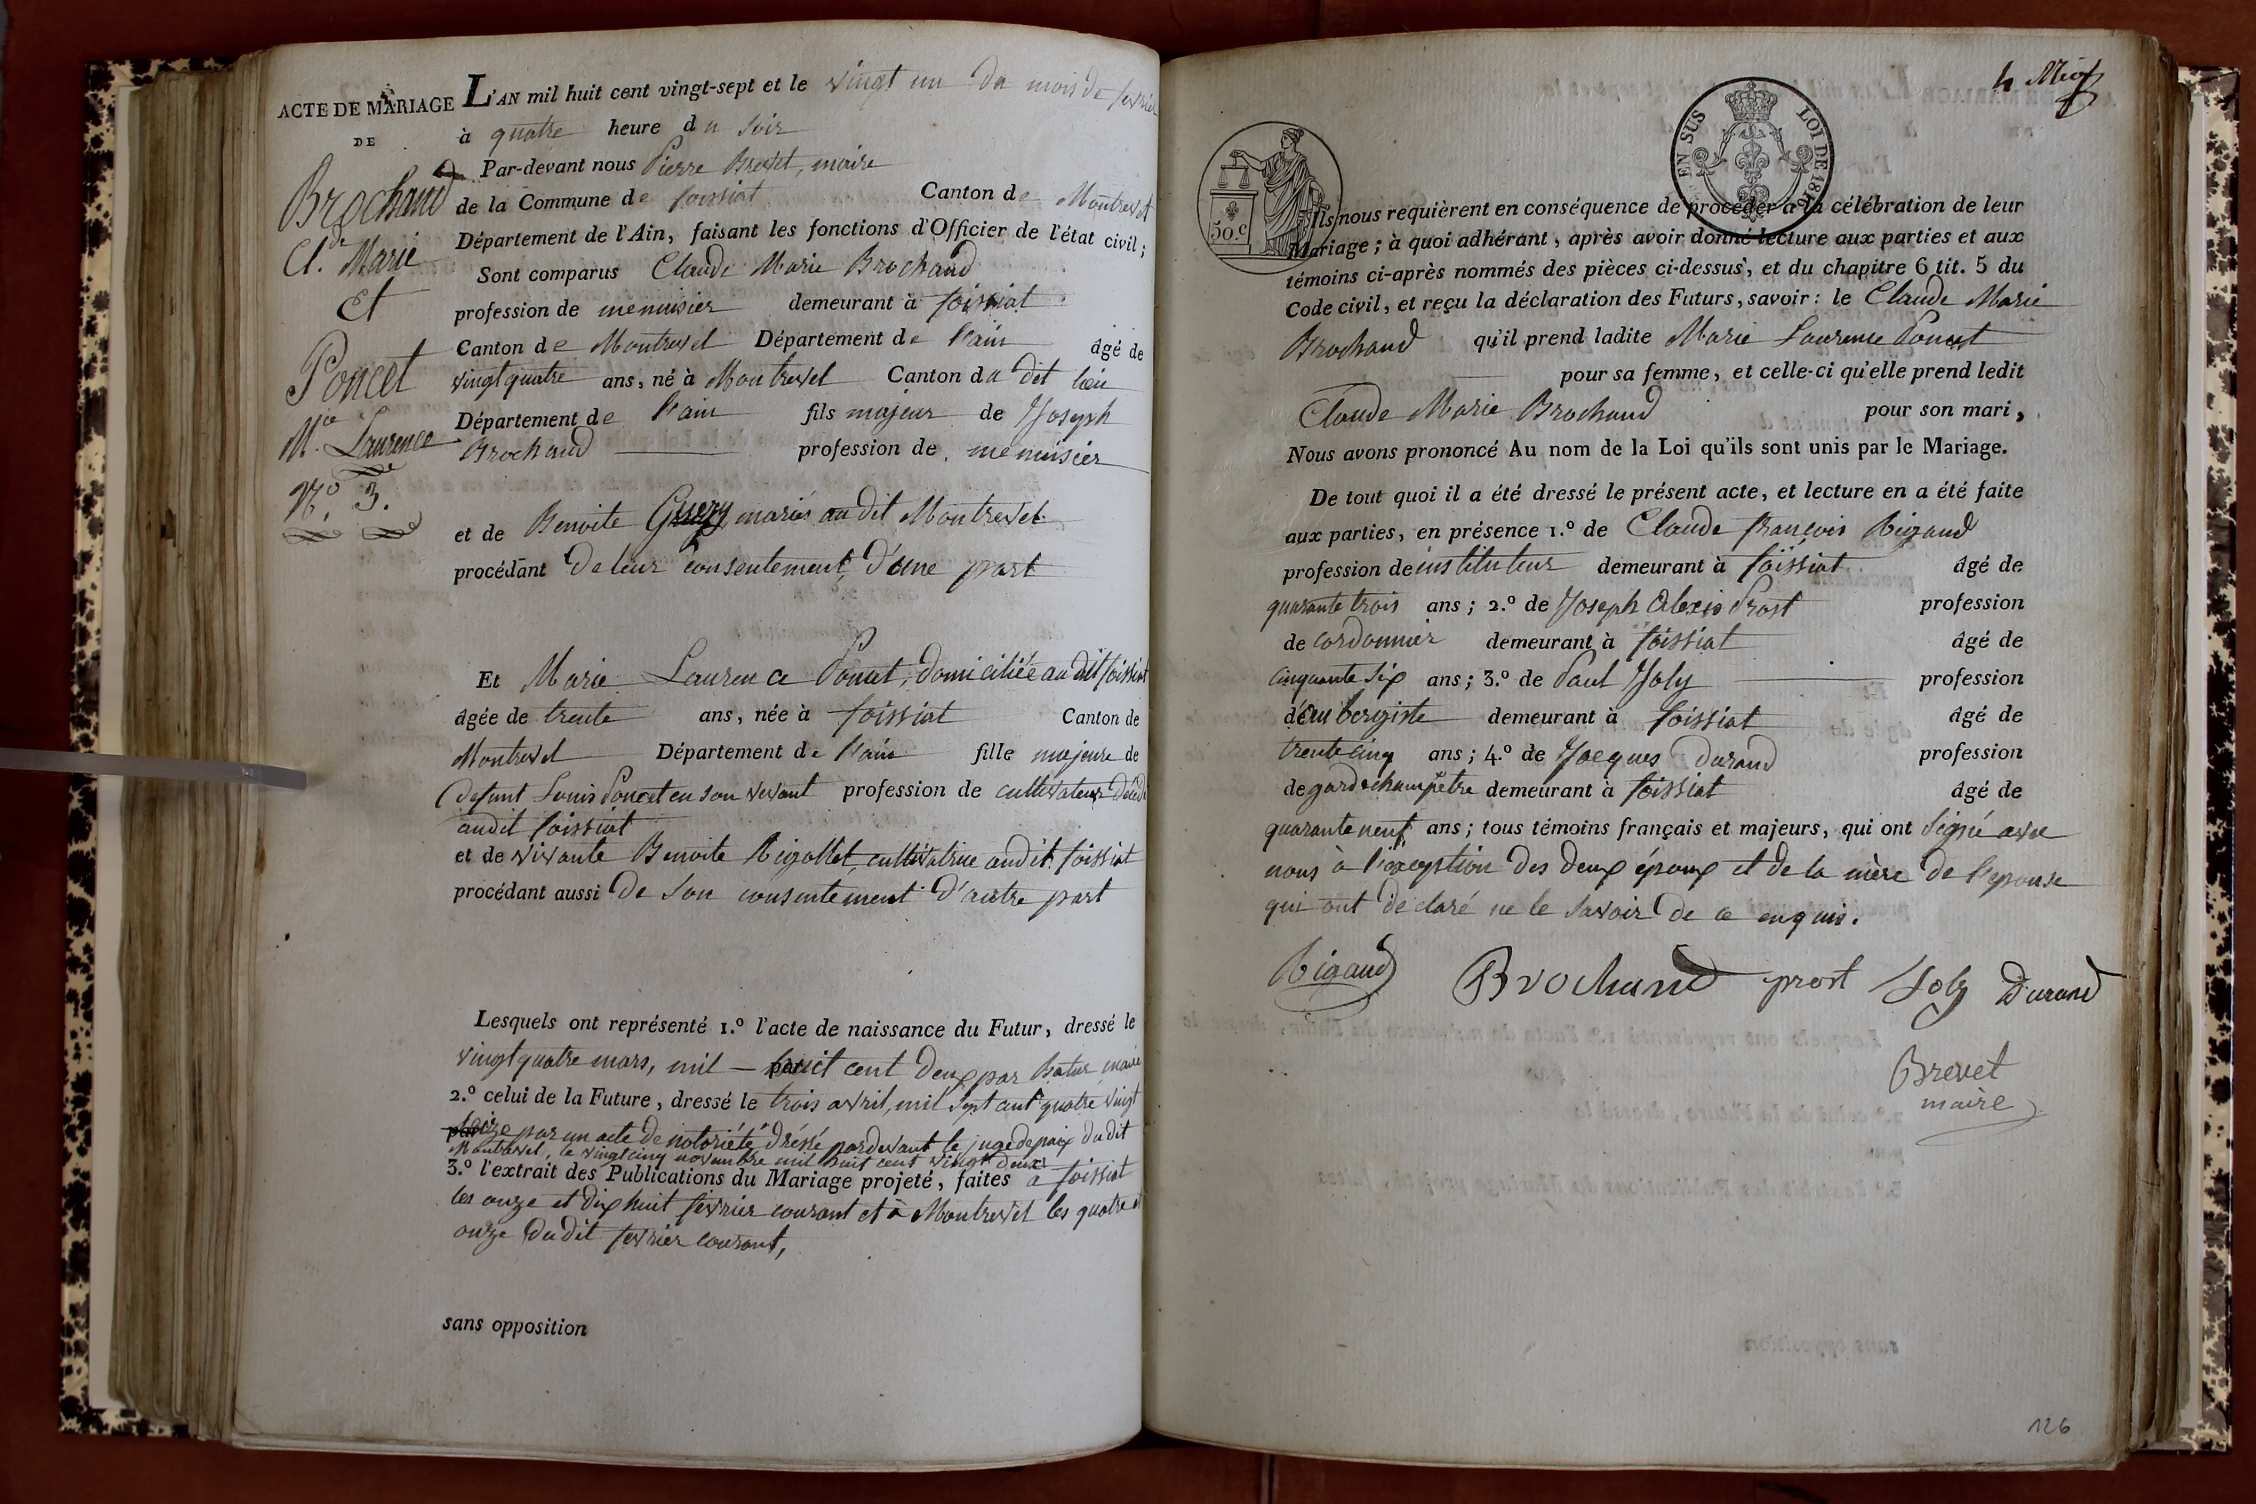 ACTE DE MARIAGE
DE
Brochand
Cl.de Marie
Et
Poncet
M.ie Laurence
N.o 3.
L'AN mil huit cent vingt-sept et le vingt un du mois de fevrier
à quatre heure du soir
Par-devant nous Pierre Brevet, maire
de la Commune de foissiat Canton de Montrevel
Département de l'Ain, faisant les fonctions d'Officier de l'état civil;
Sont comparus Claude Marie Brochand
profession de menuisier demeurant à foissiat
Canton de Montrevel Département de l'ain âgé de
vingt quatre ans, né à Montrevel Canton du dit lieu
Département de l'ain fils majeur de Joseph
Brochaud profession de menuisier
et de Benoite Guery mariés au dit Montrevel
procédant de leur consentement, d'une part
Et Marie Laurence Poncet, domiciliée au dit foissiat
âgée de trente ans, née à foissiat Canton de
Montrevel Département de l'ain fille majeure de
defunt Louis Poncet en son vivant profession de cultivateur décédé
audit foissiat
et de vivante Benoite Rigollet, cultivatrice audit foissiat
procédant aussi de son consentement d'autre part
Lesquels ont représenté 1.º l'acte de naissance du Futur, dressé le
vingt quatre mars, mil huit cent deux par Batur maire
2.º celui de la Future, dressé le trois avril, mil sept cent quatre vingt
seize par un acte de notoriété dréssé pardevant le juge de paix du dit
Montrevel, le vingt cinq novembre mil huit cent vingt deux
3.º l'extrait des Publications du Mariage projeté, faites à foissiat
les onze et dix huit fevrier courant et à Montrevel les quatre et
onze du dit fevrier courant,
sans opposition
EN SUS LOI DE 1816
50.c
Ils nous requièrent en conséquence de procéder à la célébration de leur
Mariage; à quoi adhérant, après avoir donné lecture aux parties et aux
témoins ci-après nommés des pièces ci-dessus, et du chapitre 6 tit. 5 du
Code civil, et reçu la déclaration des Futurs, savoir: le Claude Marie
Brochaud qu'il prend ladite Marie Laurence Poncet
pour sa femme, et celle-ci qu'elle prend ledit
Claude Marie Brochaud pour son mari,
Nous avons prononcé Au nom de la Loi qu'ils sont unis par le Mariage.
De tout quoi il a été dressé le présent acte, et lecture en a été faite
aux parties, en présence 1.º de Claude françois Rigaud
profession de instituteur demeurant à foissiat âgé de
quarante trois ans; 2.º de Joseph Alexis Prost profession
de cordonnier demeurant à foissiat âgé de
cinquante six ans; 3.º de Paul Joly profession
d'aubergiste demeurant à foissiat âgé de
trente cinq ans; 4.º de Jacques Durand profession
de garde champêtre demeurant à foissiat âgé de
quarante neuf ans; tous témoins français et majeurs, qui ont signé avec
nous à l'exception des deux époux et de la mère de l'epouse
qui ont déclaré ne le savoir de ce enquis.
Rigaud Brochand prost Joly Durand
Brevet
maire
126